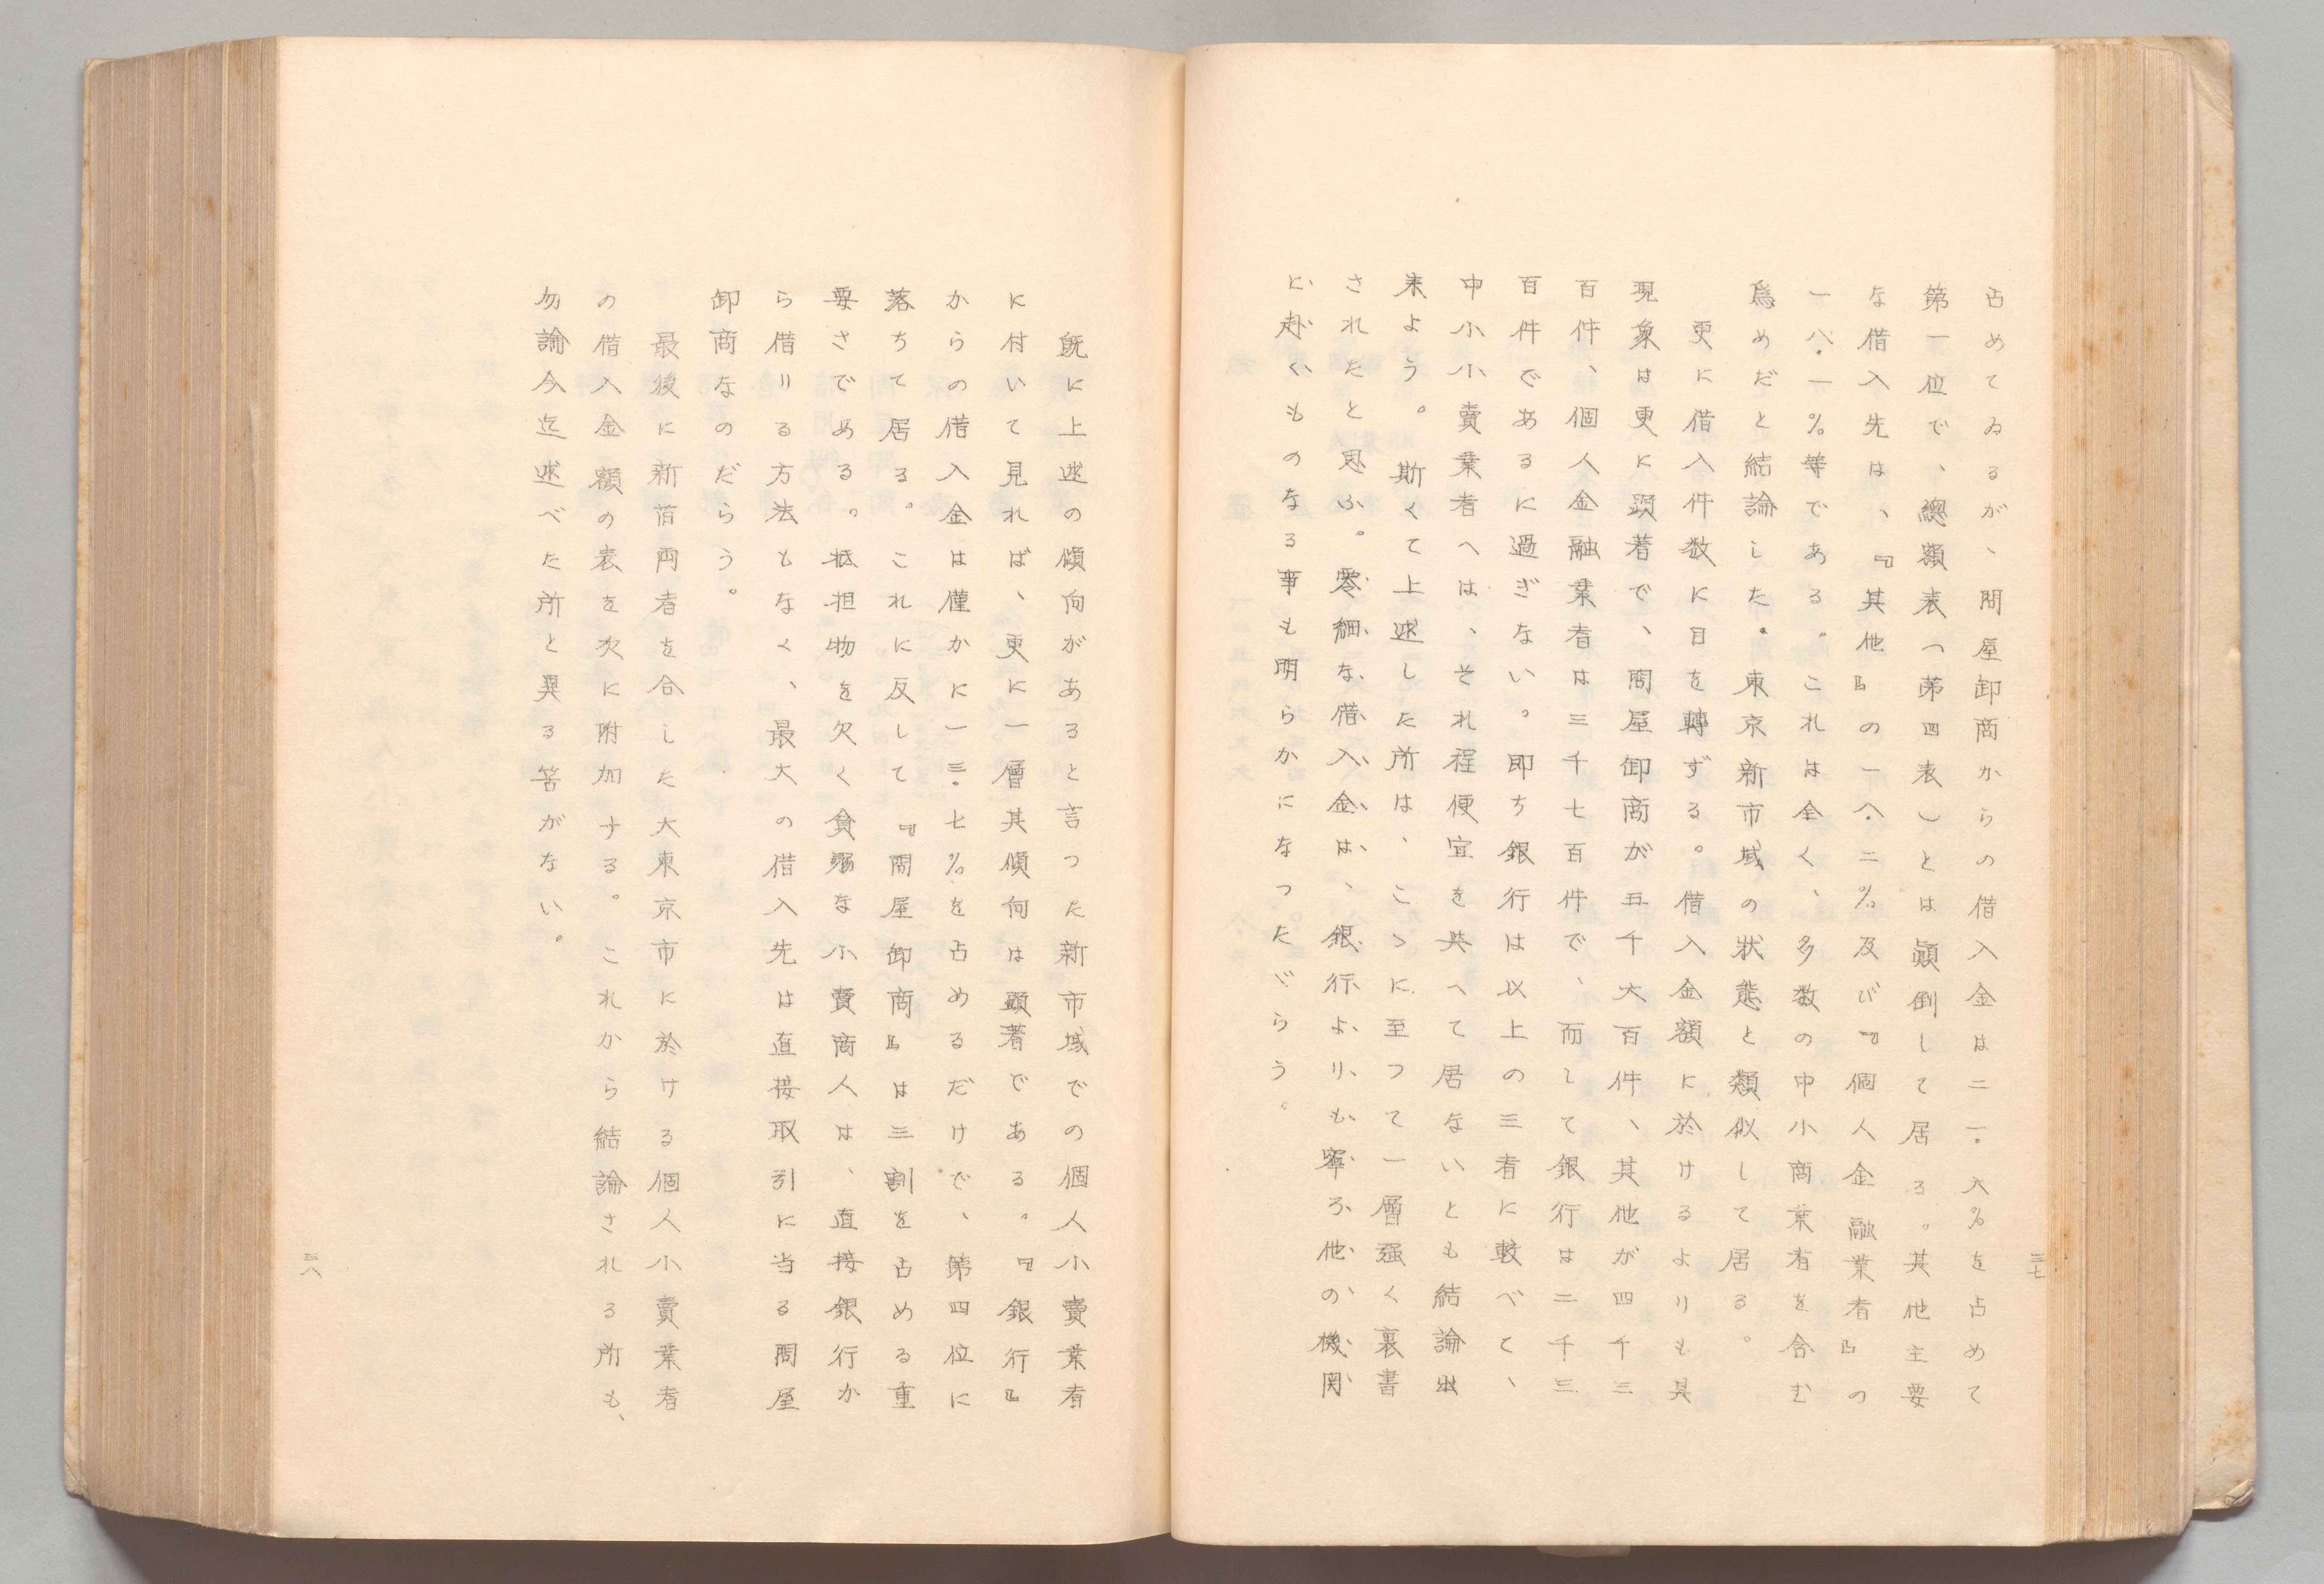 占めてゐるが、問屋卸商からの借入金は二一・六%を占めて
第一位で、總額表(第四表)とは顚倒して居る。其他主要
な借入先は、『其他』の一八・二%及び『個人金融業者』の
一八・一%等である。これは全く、多数の中小商業者を含む
爲めだと結論した。東京新市域の狀態と類似して居る。
更に借入件数に目を轉ずる。借入金額に於けるよりも其
現象は更に顕著で、問屋卸商が五千六百件、其他が四千三
百件、個人金融業者は三千七百件で、而して銀行は二千三
百件であるに過ぎない。即ち銀行は以上の三者に較べて、
中小小賣業者へは、それ程便宜を與へて居ないとも結論出
来よう。斯くて上述した所は、こゝに至つて一層强く裏書
されたと思ふ。零細な借入金は、銀行よりも寧ろ他の機関
に赴くものなる事も明らかになつただらう。
三七
既に上述の傾向があると言つた新市域での個人小賣業者
に付いて見れば、更に一層其傾向は顕著である。『銀行』
からの借入金は僅かに一三・七%を占めるだけで、第四位に
落ちて居る。これに反して『問屋卸商』は三割を占める重
要さである。抵担物を欠く貧弱な小賣商人は、直接銀行か
ら借りる方法もなく、最大の借入先は直接取引に当る問屋
卸商なのだらう。
最後に新旧両者を合した大東京市に於ける個人小賣業者
の借入金額の表を次に附加する。これから結論される所も、
勿論今迄述べた所と異る筈がない。
三八